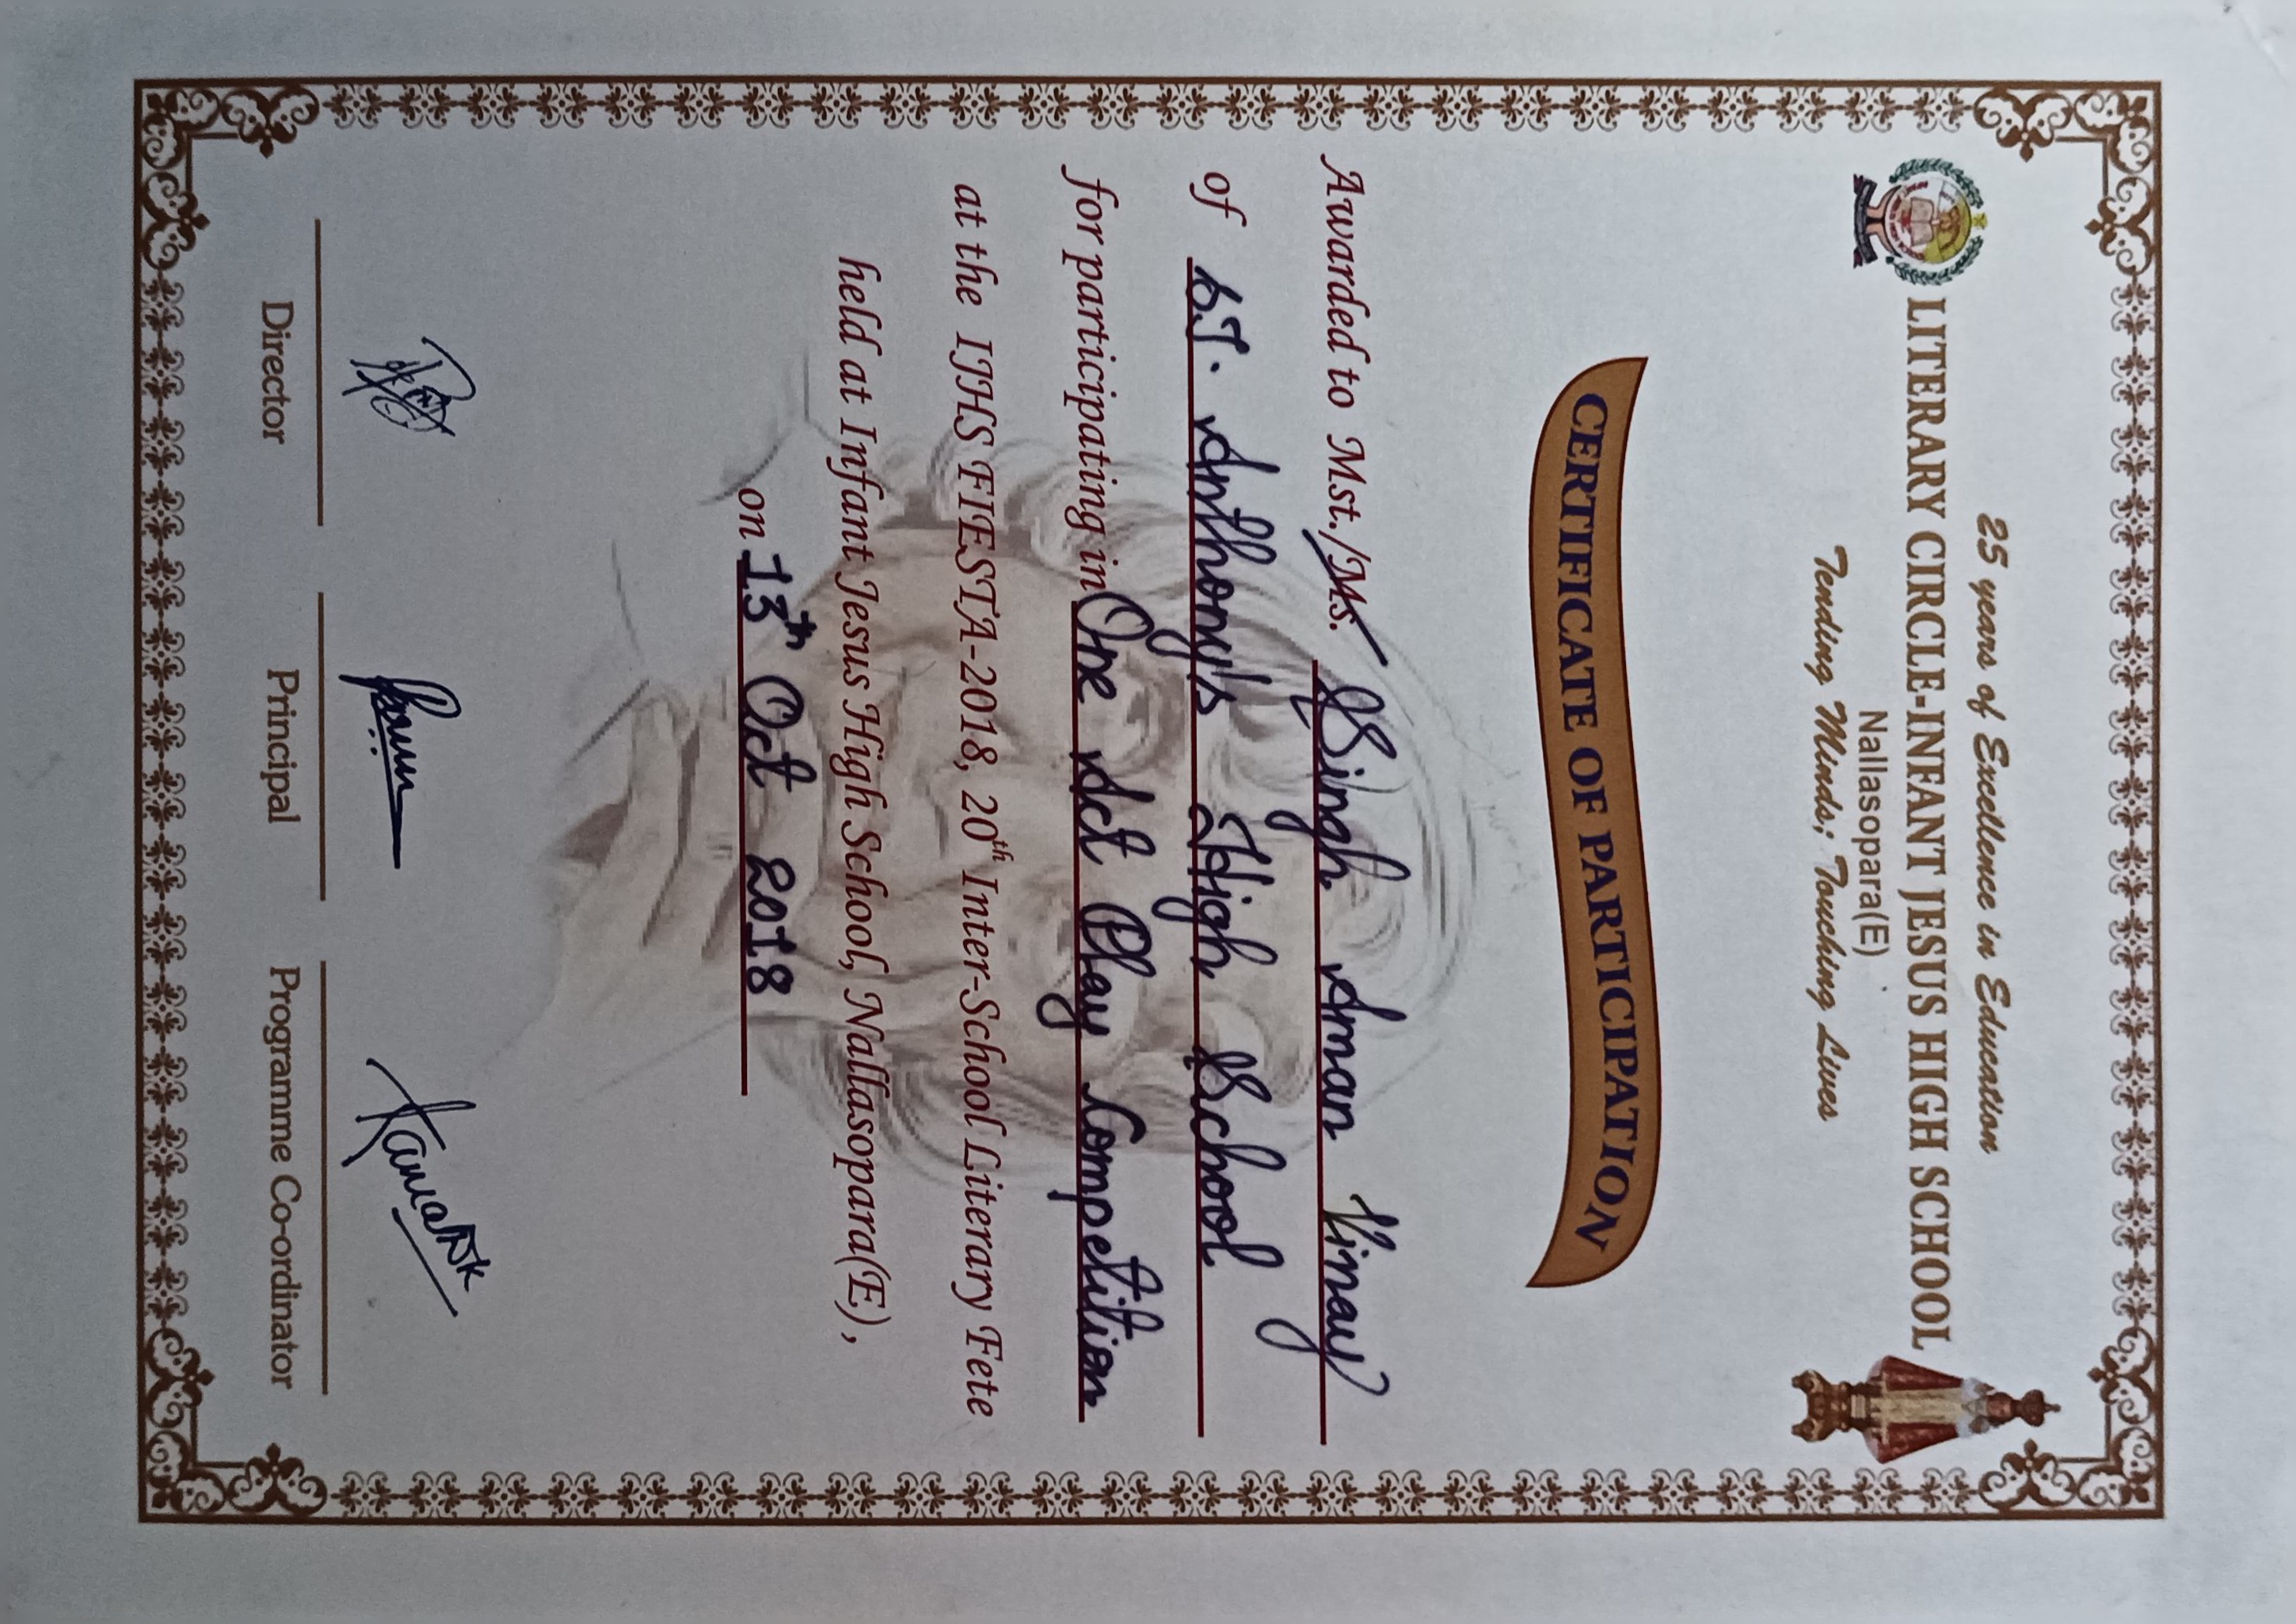 25 years of Excellence in Education
LITERARY CIRCLE-INFANT JESUS HIGH SCHOOL
Nallasopara(E)
Tending Minds; Touching Lives
CERTIFICATE OF PARTICIPATION
Awarded to Mst./Ms. Singh Aman Vinay
of St. Anthony's High School
for participating in One Act Play Competition
at the IJHS FIESTA-2018, 20th Inter-School Literary Fete
held at Infant Jesus High School, Nallasopara(E),
on 13th Oct 2018
Director Principal Programme Co-ordinator